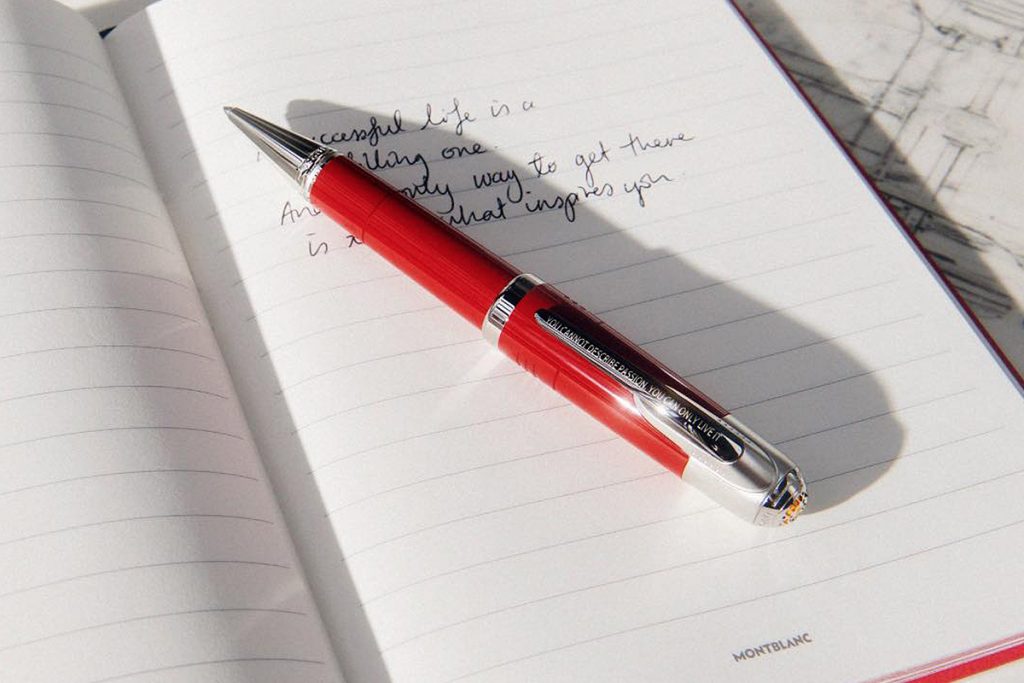 ccessful life is a
lling one.
An only way to get there
is what inspires you.
YOU CANNOT DESCRIBE PASSION, YOU CAN ONLY LIVE IT
MONTBLANC